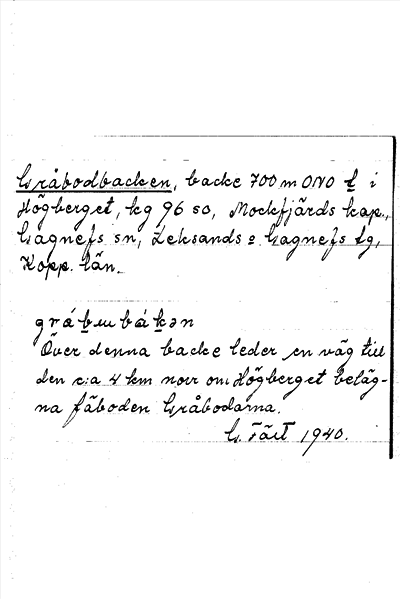 Gråbodbacken, backe 700 m ONO t i
Högberget, kg 96 so, Mockfjärds kap.,
Gagnefs sn, Leksands o Gagnefs tg,
Kopp. län.
Över denna backe leder en väg till
den c:a 4 km norr om Högberget beläg-
na fäboden Gråbodarna.
G. Täst 1940.